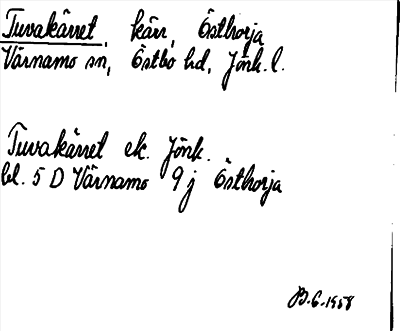 Tuvakärret, kärr, Östhorja
Värnamo sn, Östbo hd, Jönk. l.
Tuvakärret ek. Jönk.
bl. 5 D Värnamo 9 j Östhorja
B.G. 1958